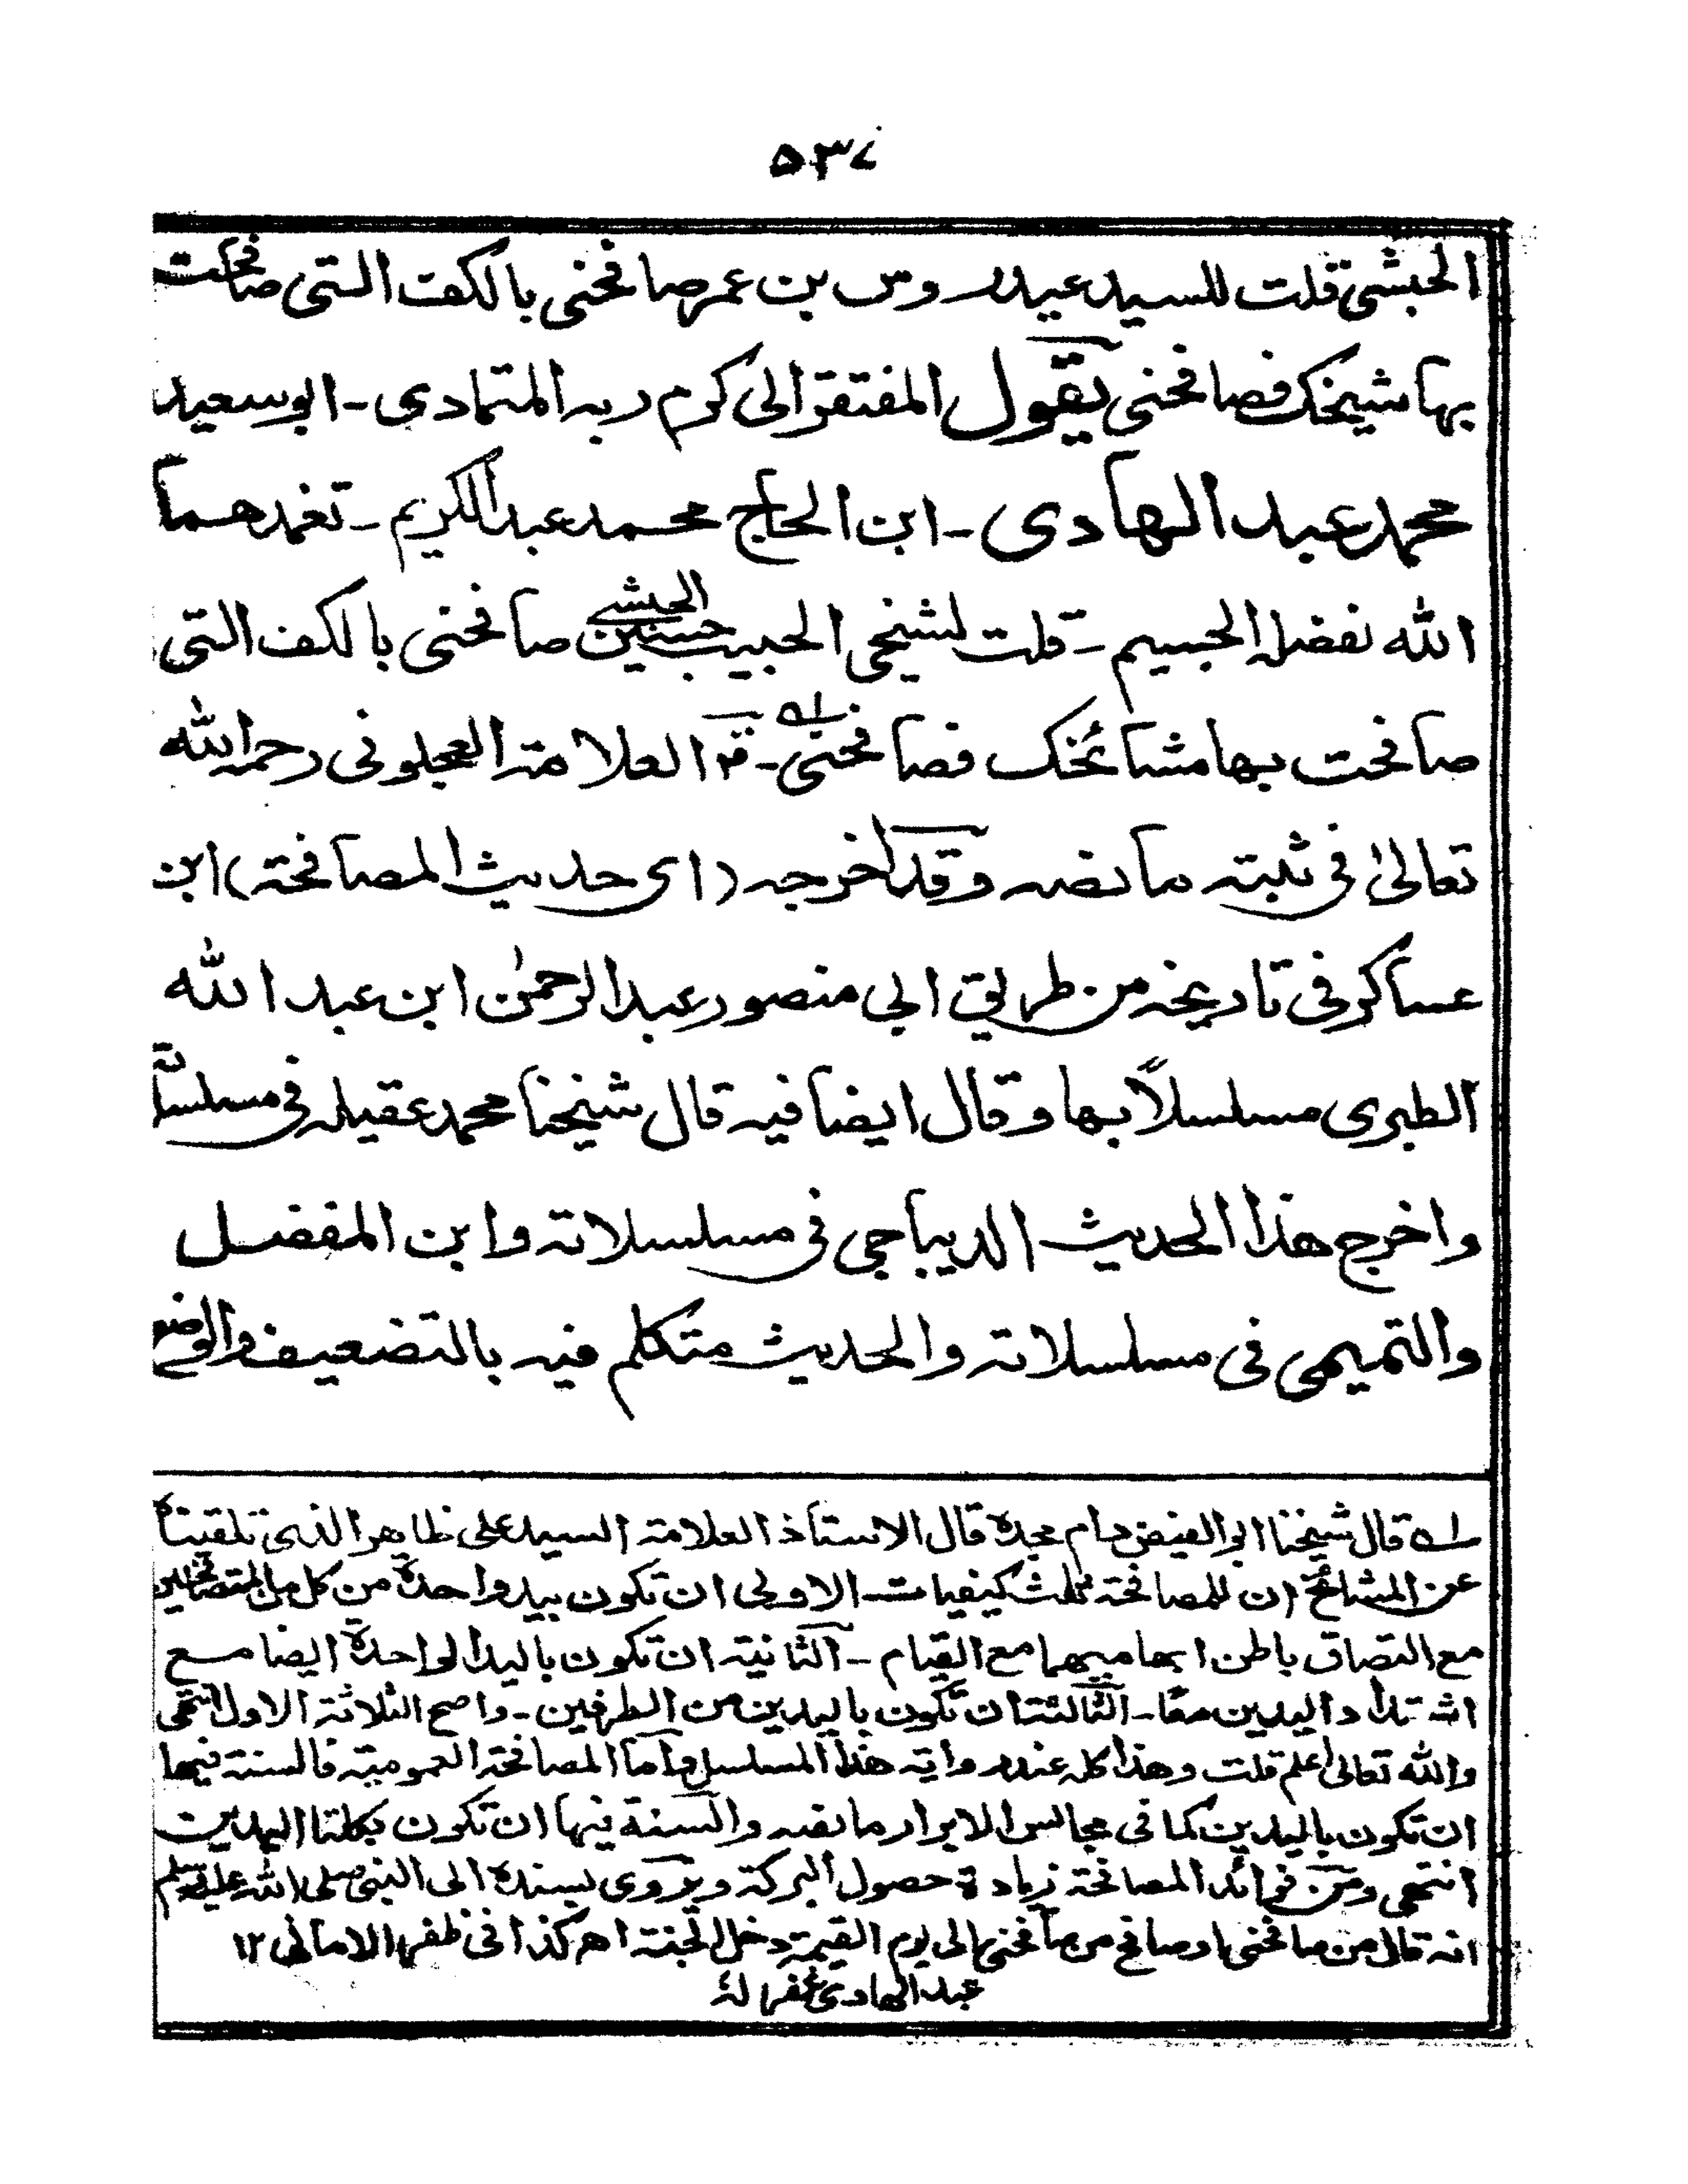 ٥٣٧
الحبشى قلت للسيد عيدروس بن عمر صافحنى بالكف التى صافحت
بها شيخك فصافحنى يقول المفتقر الى كرم ربه المتمادى - ابو سعيد
محمد عبد الهادى - ابن الحاج محمد عبد الكريم - تغمدهما
الله بفضله الجسيم - قلت لشيخى الحبيب حسين الحبشے صافحنى بالكف التى
صافحت بها مشائخك فصافحنى له - قو العلامة العجلونى رحمه الله
تعالىٰ فى ثبته ما نصه وقد اخرجه (اى حديث المصافحة) ابن
عساكر فى تاريخه من طريق ابي منصور عبد الرحمٰن ابن عبد الله
الطبرى مسلسلاً بها وقال ايضا فيه قال شيخنا محمد عقيله فى مسلسلاته
واخرج هذا الحديث الديباجى فى مسلسلاته وابن المفضل
والتميمى فى مسلسلاته والحديث متكلم فيه بالتضعيف والوضع
له قال شيخنا ابو الفيض دام مجده قال الاستاذ العلامة السيد على ظاهر الذى تلقيناه
عن المشائخ ان للمصافحة ثلث كيفيات الاولى ان تكون بيد واحدة من كل من المتصافحين
مع التصاق باطن ابهاميهما مع القيام - الثانية ان تكون باليد الواحدة ايضا مع
اشتداد اليدين معًا - الثالثة ان تكون باليدين من الطرفين - واصح الثلاثة الاول انتهى
والله تعالى اعلم قلت وهذا كله عند رواية هذا المسلسل واما المصافحة العمومية فالسنة فيها
ان تكون باليدين كما فى مجالس الابرار ما نصه والسنة فيها ان تكون بكلتا اليدين
انتهى ومن فوائد المصافحة زيادة حصول البركة ويروى بسنده الى النبى صلى الله عليه وسلم
انه قال من صافحنى او صافح من صافحنى الى يوم القيمة دخل الجنة اھ كذا فى ظفر الامالى ١٢
عبد الهادى غفر لهٗ